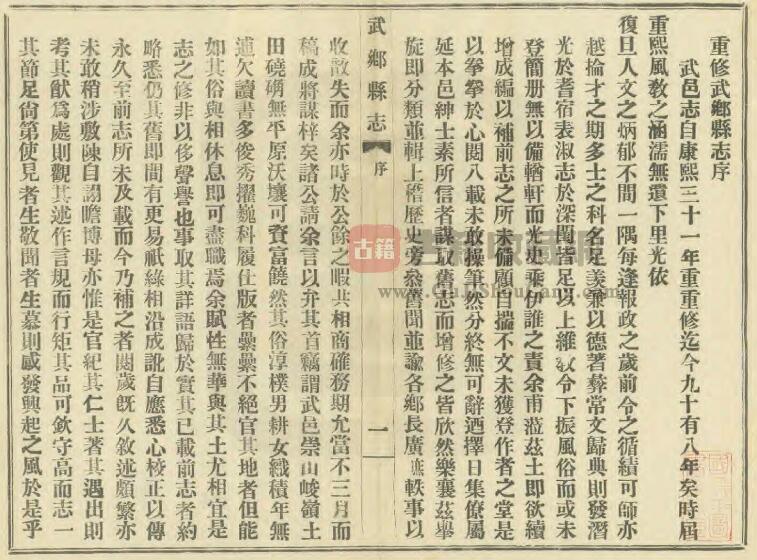 重修武鄉縣志序
武邑志自康熙三十一年重重修迄今九十有八年矣時屆
重熙風敎之涵濡無遠下里光依
復旦人文之炳郁不間一隅每逢報政之歲前令之循績可師亦
越掄才之期多士之科名足羨兼以德著彜常文歸典則發潛
光於耆宿表淑志於深閨皆足以上維 令下振風俗而或未
登簡册無以備輶軒而光史乘伊誰之責余甫蒞茲土即欲續
增成編以補前志之所未備顧自揣不文未獲登作者之堂是
以拳拳於心閱八載未敢操筆然分終無可辭迺擇日集僚屬
延本邑紳士素所信者謀取舊志而增修之皆欣然樂襄茲舉
旋即分類並輯上稽歷史旁叅舊聞並諭各鄉長廣 軼事以
武鄉縣志
序
一
收散失而余亦時於公餘之暇共相商確務期允當不三月而
稿成將謀梓矣諸公請余言以弁其首竊謂武邑崇山峻嶺土
田磽磞無平原沃壤可資富饒然其俗淳樸男耕女織積年無
逋欠讀書多俊秀擢巍科履仕版者纍纍不絕官其地者但能
如其俗與相休息即可盡職焉余賦性無華與其土尤相宜是
志之修非以侈聲譽也事取其詳語歸於實其已載前志者約
略悉仍其舊即間有更易祇緣相沿成訛自應悉心校正以傳
永久至前志所未及載而今乃補之者閱歲旣久敘述頗繁亦
未敢稍涉敷陳自詡瞻博毋亦惟是官紀其仁士著其遇出則
考其猷爲處則觀其述作言規而行矩其品可欽守高而志一
其節足尙第使見者生敬聞者生慕則感發興起之風於是乎
古籍
www.GujiShouCang.com